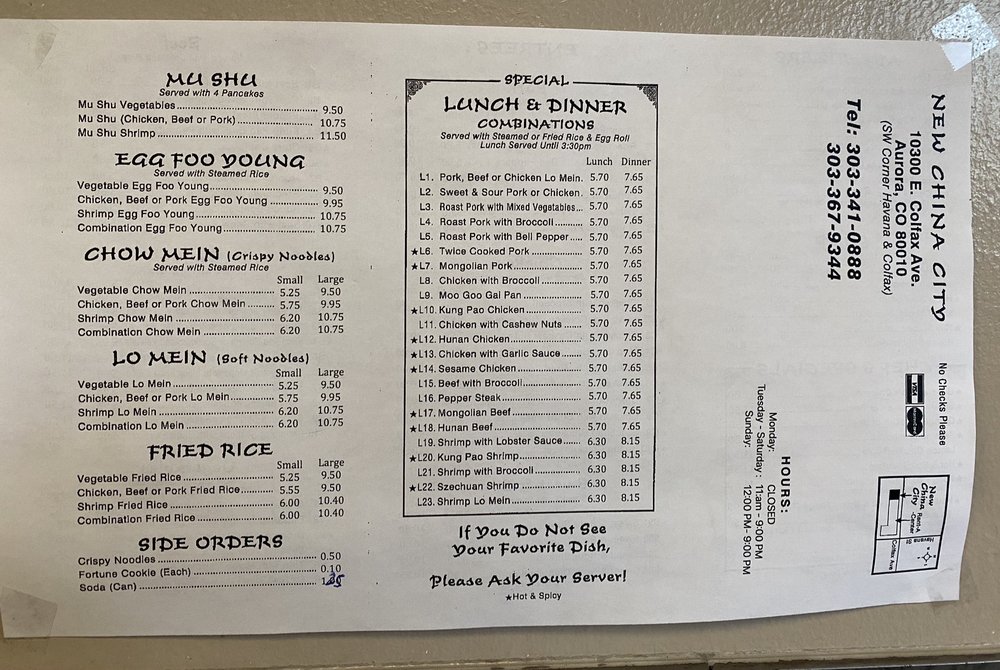 MU SHU
Served with 4 Pancakes
Mu Shu Vegetables 9.50
Mu Shu (Chicken, Beef or Pork) 10.75
Mu Shu Shrimp 11.50
EGG FOO YOUNG
Served with Steamed Rice
Vegetable Egg Foo Young 9.50
Chicken, Beef or Pork Egg Foo Young 9.95
Shrimp Egg Foo Young 10.75
Combination Egg Foo Young 10.75
CHOW MEIN (Crispy Noodles)
Served with Steamed Rice
Small Large
Vegetable Chow Mein 5.25 9.50
Chicken, Beef or Pork Chow Mein 5.75 9.95
Shrimp Chow Mein 6.20 10.75
Combination Chow Mein 6.20 10.75
LO MEIN (Soft Noodles)
Small Large
Vegetable Lo Mein 5.25 9.50
Chicken, Beef or Pork Lo Mein 5.75 9.95
Shrimp Lo Mein 6.20 10.75
Combination Lo Mein 6.20 10.75
FRIED RICE
Small Large
Vegetable Fried Rice 5.25 9.50
Chicken, Beef or Pork Fried Rice 5.55 9.50
Shrimp Fried Rice 6.00 10.40
Combination Fried Rice 6.00 10.40
SIDE ORDERS
Crispy Noodles 0.50
Fortune Cookie (Each) 0.10
Soda (Can) 1.25
SPECIAL
LUNCH & DINNER
COMBINATIONS
Served with Steamed or Fried Rice & Egg Roll
Lunch Served Until 3:30pm
Lunch Dinner
L1. Pork, Beef or Chicken Lo Mein. 5.70 7.65
L2. Sweet & Sour Pork or Chicken. 5.70 7.65
L3. Roast Pork with Mixed Vegetables... 5.70 7.65
L4. Roast Pork with Broccoli 5.70 7.65
L5. Roast Pork with Bell Pepper 5.70 7.65
★L6. Twice Cooked Pork 5.70 7.65
★L7. Mongolian Pork 5.70 7.65
L8. Chicken with Broccoli 5.70 7.65
L9. Moo Goo Gai Pan 5.70 7.65
★L10. Kung Pao Chicken 5.70 7.65
L11. Chicken with Cashew Nuts 5.70 7.65
★L12. Hunan Chicken 5.70 7.65
★L13. Chicken with Garlic Sauce 5.70 7.65
★L14. Sesame Chicken 5.70 7.65
L15. Beef with Broccoli 5.70 7.65
L16. Pepper Steak 5.70 7.65
★L17. Mongolian Beef 5.70 7.65
★L18. Hunan Beef 5.70 7.65
L19. Shrimp with Lobster Sauce 6.30 8.15
★L20. Kung Pao Shrimp 6.30 8.15
L21. Shrimp with Broccoli 6.30 8.15
★L22. Szechuan Shrimp 6.30 8.15
L23. Shrimp Lo Mein 6.30 8.15
If You Do Not See
Your Favorite Dish,
Please Ask Your Server!
★Hot & Spicy
NEW CHINA CITY
10300 E. Colfax Ave.
Aurora, CO 80010
(SW Corner Havana & Colfax)
Tel: 303-341-0888
303-367-9344
No Checks Please
VISA
MasterCard
HOURS:
Monday: CLOSED
Tuesday - Saturday: 11:am - 9:00 PM
Sunday: 12:00 PM - 9:00 PM
New
China
City
Rent-A
-Center
Havana St
Colfax Ave